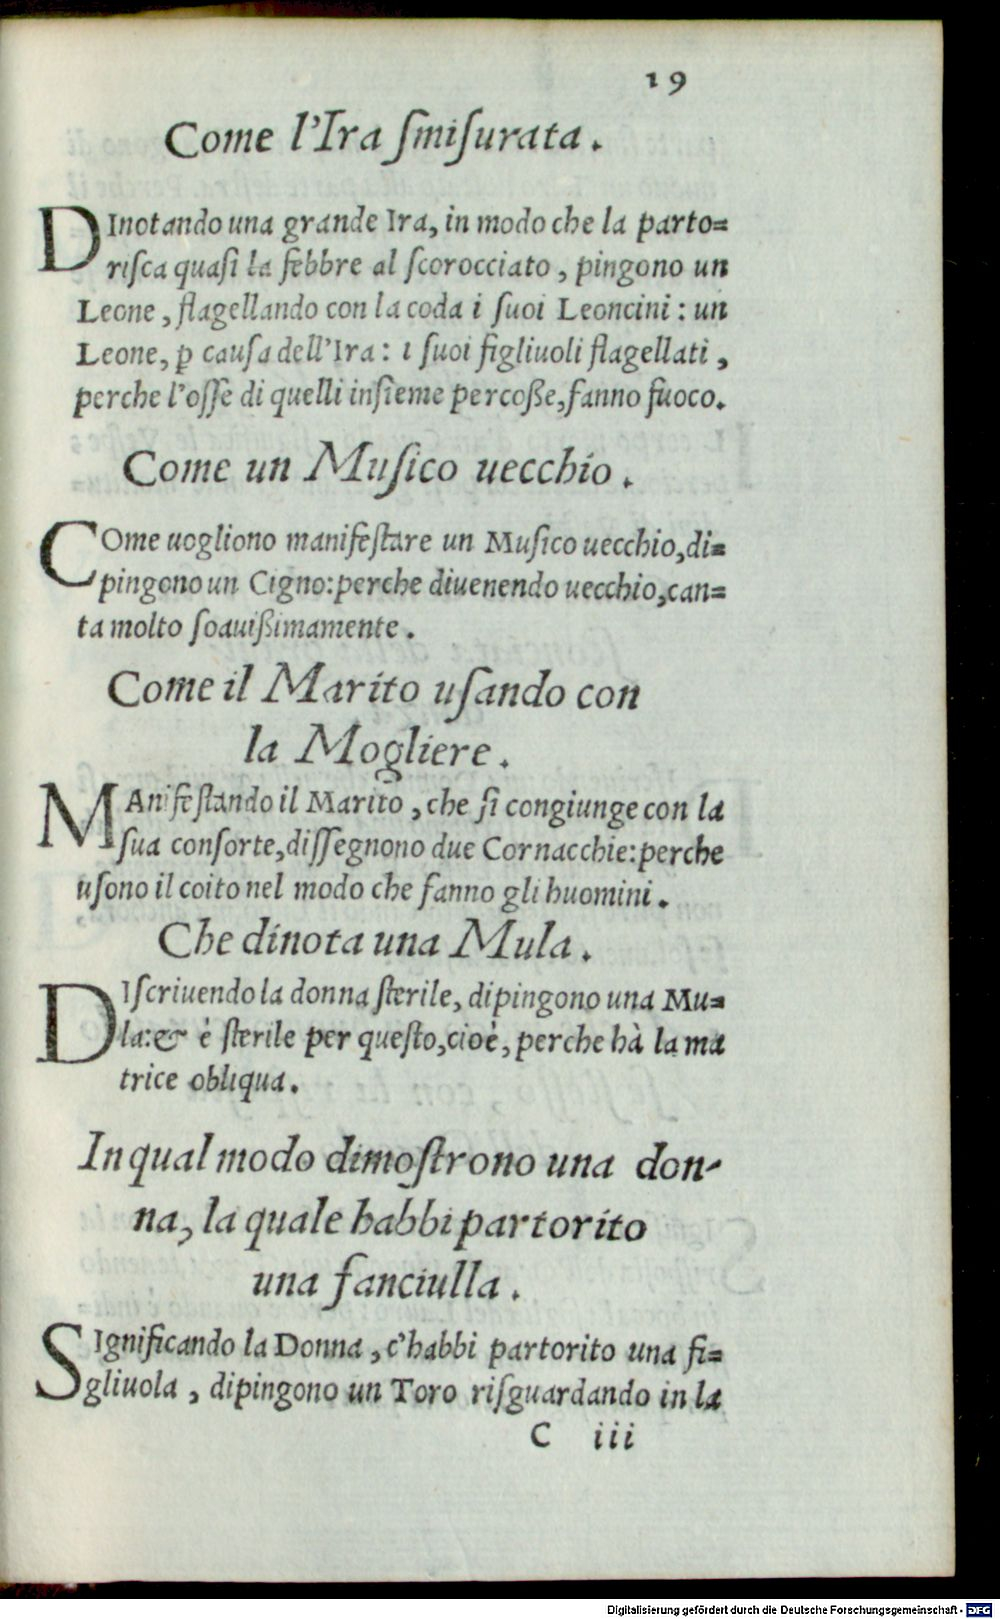 19
Come l'Ira ſmiſurata.
DInotando una grande Ira, in modo che la parto=
riſca quaſi la febbre al ſcorocciato, pingono un
Leone, flagellando con la coda i ſuoi Leoncini: un
Leone, ꝑ cauſa dell'Ira: i ſuoi figliuoli flagellati,
perche l'oſſe di quelli inſieme percoße, fanno fuoco.
Come un Muſico uecchio.
COme uogliono manifeſtare un Muſico uecchio, di=
pingono un Cigno: perche diuenendo uecchio, can=
ta molto ſoauißimamente.
Come il Marito uſando con
la Mogliere.
MAnifeſtando il Marito, che ſi congiunge con la
ſua conſorte, diſſegnono due Cornacchie: perche
uſono il coito nel modo che fanno gli huomini.
Che dinota una Mula.
DIſcriuendo la donna ſterile, dipingono una Mu=
la: & è ſterile per queſto, cioè, perche hà la ma
trice obliqua.
In qual modo dimoſtrono una don-
na, la quale habbi partorito
una fanciulla.
SIgnificando la Donna, c'habbi partorito una fi=
gliuola, dipingono un Toro riſguardando in la
C iii
Digitalisierung gefördert durch die Deutsche Forschungsgemeinschaft - DFG